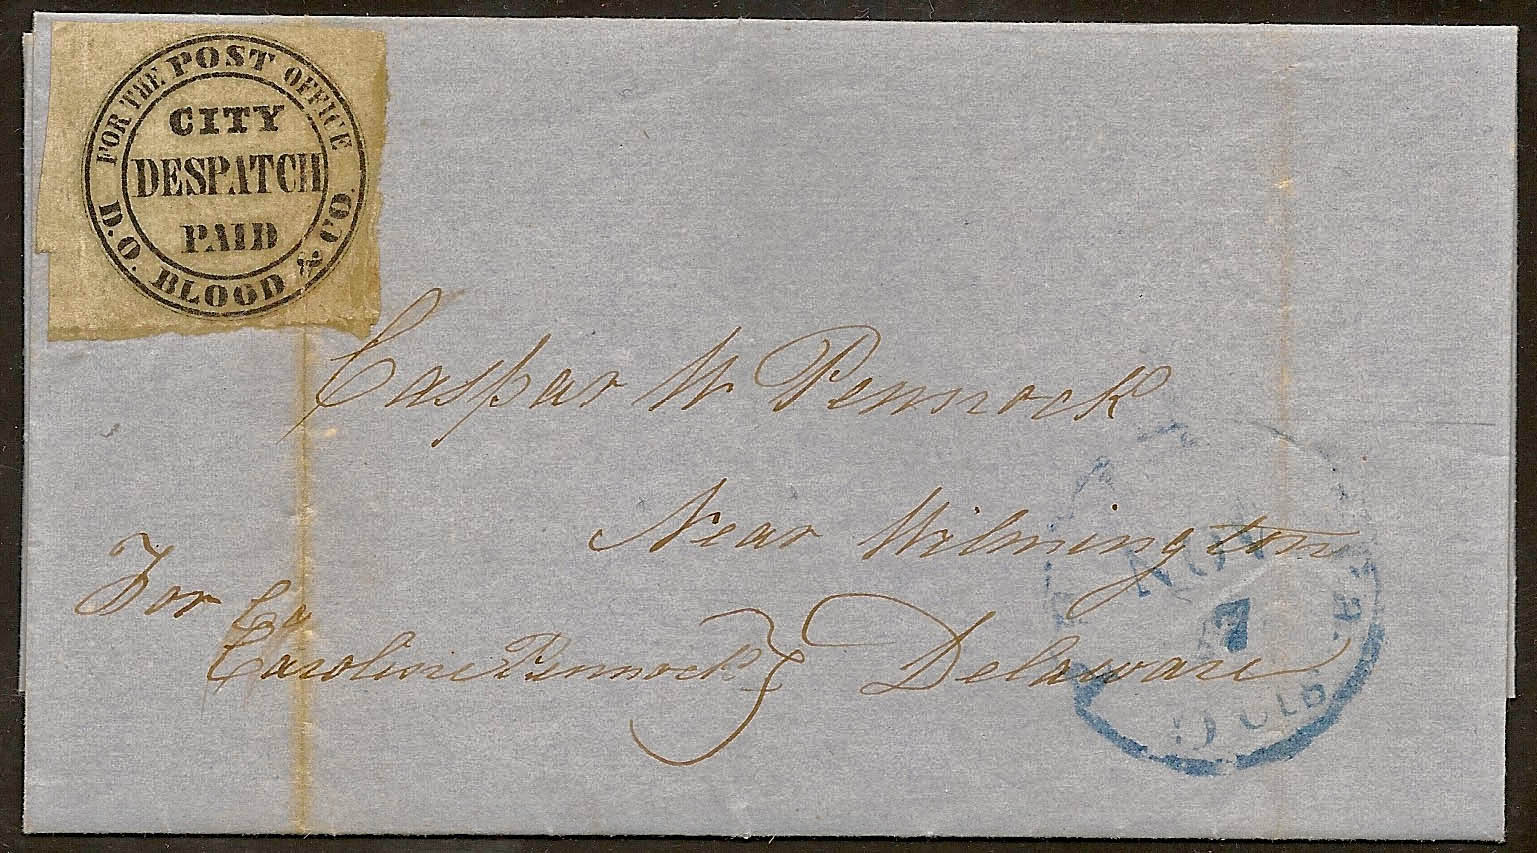 FOR THE POST OFFICE
CITY
DESPATCH
PAID
D.O. BLOOD & CO.
Caspar W Pennock
Near Wilmington
For
Caroline Pennock
Delaware
NOV
7